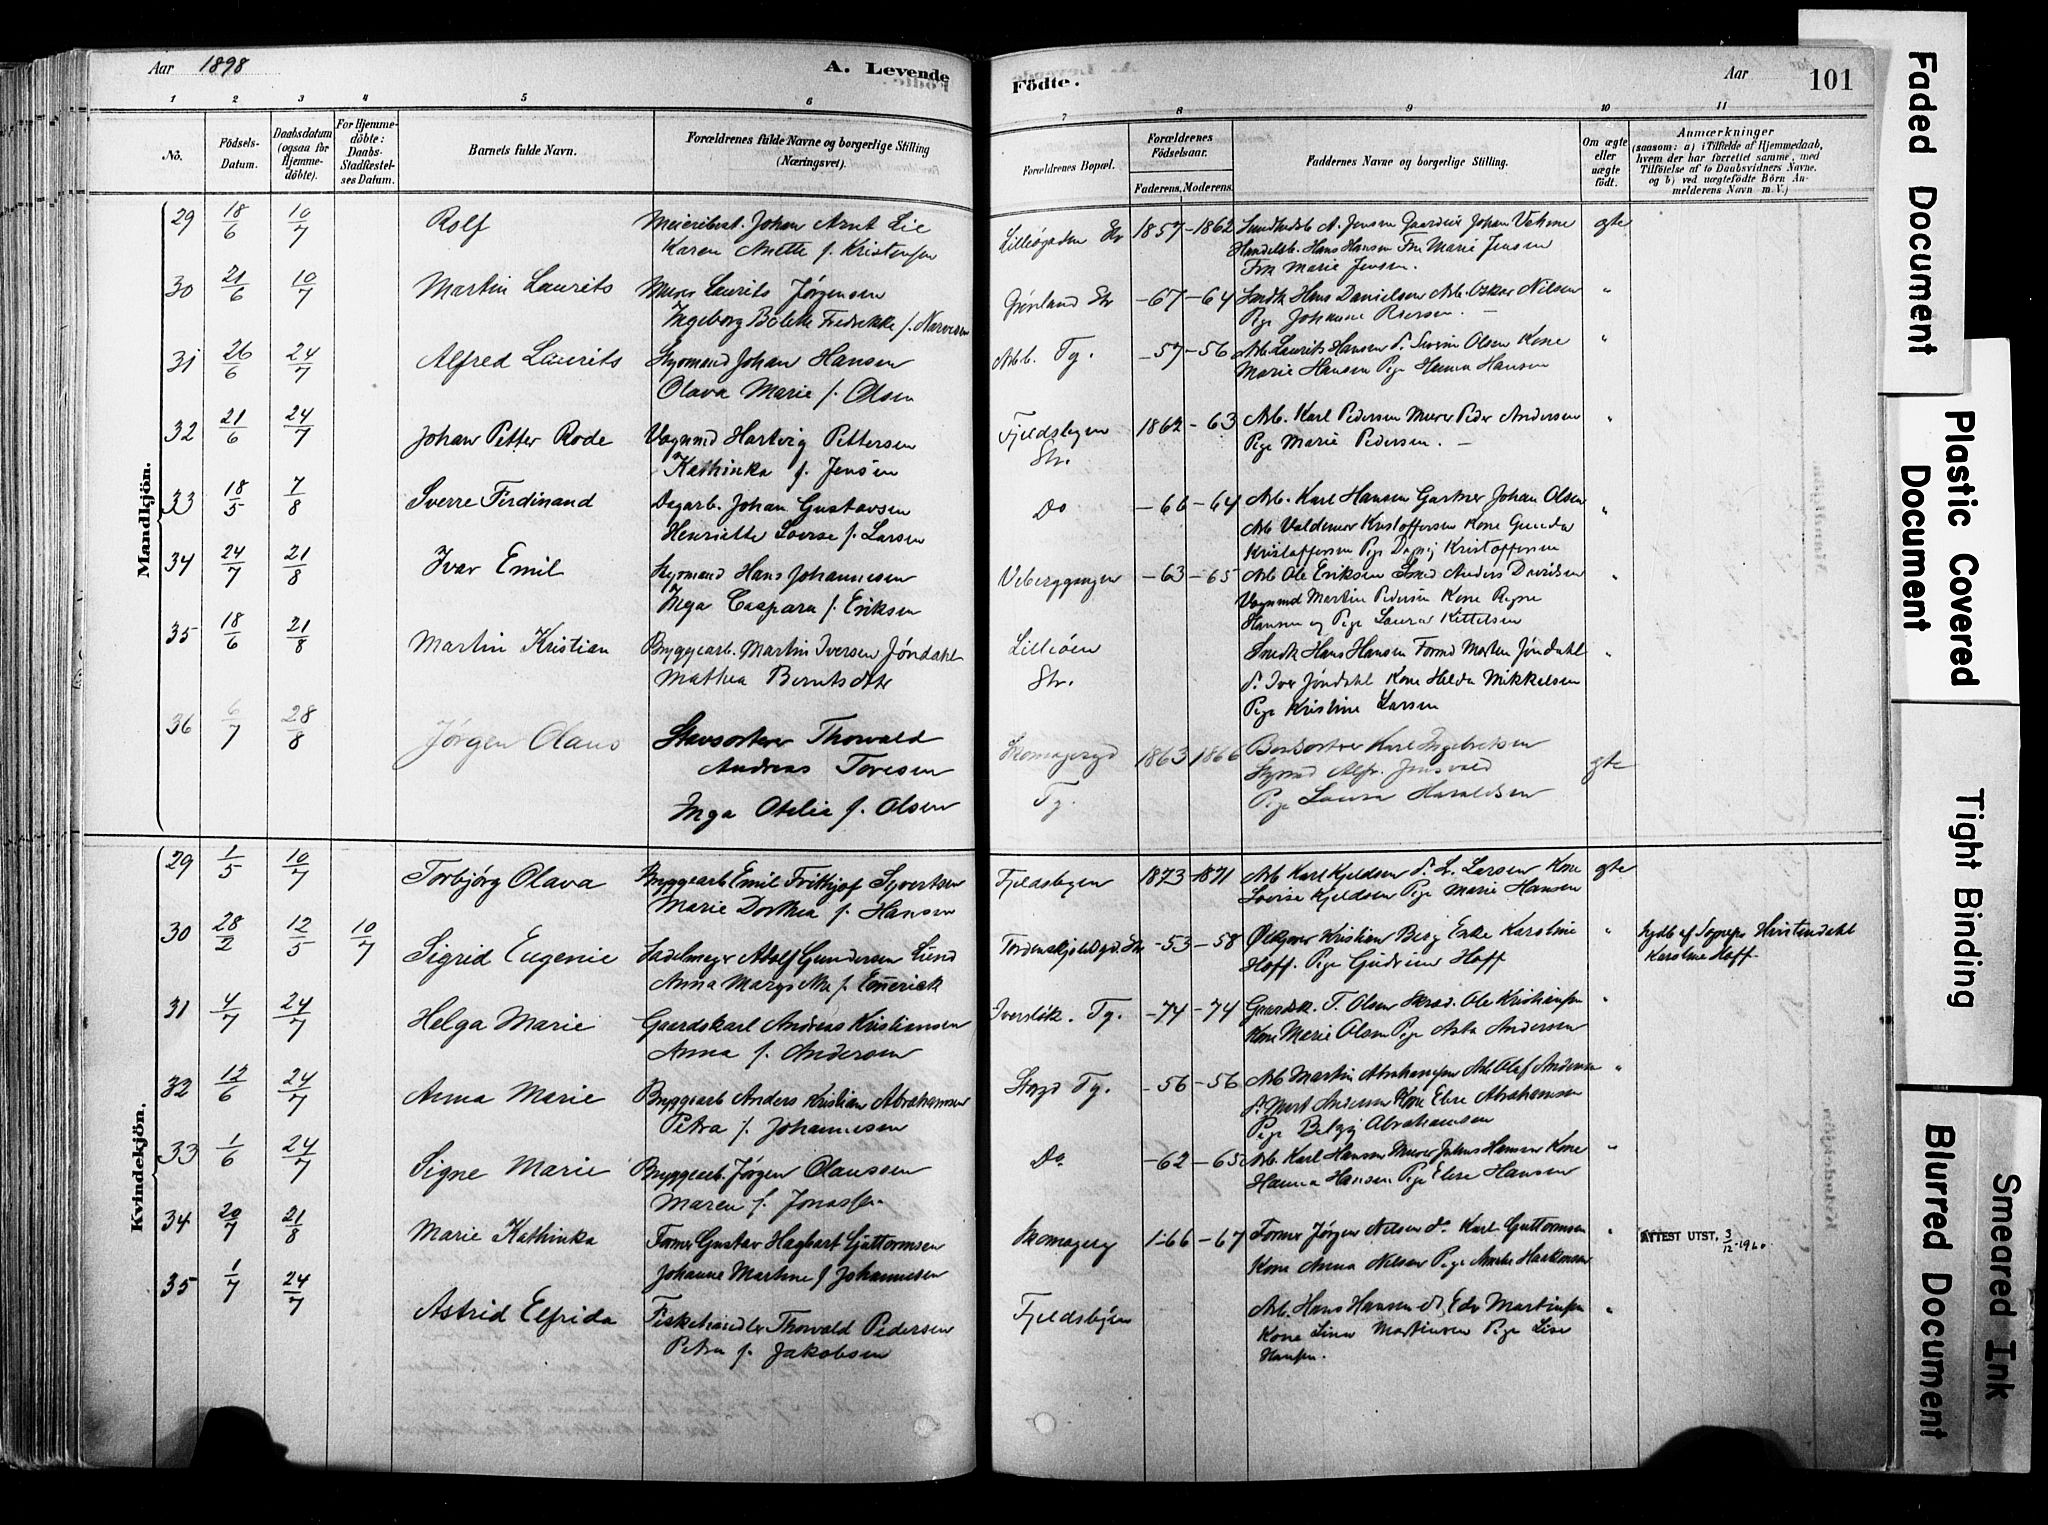 Aar 1898
A. Levende
Födte.
Aar
101
1 2 3 4 5 6 7 8 9 10 11
No.
Födsels-Datum.
Daabsdatum (ogsaa for Hjemmedöbte).
For Hjemmedöbte: Daabs-Stadfæstelses Datum.
Barnets fulde Navn.
Forældrenes fulde Navne og borgerlige Stilling (Næringsvei).
Forældrenes Bopæl.
Forældrenes Födselsaar.
Faderens. Moderens.
Faddernes Navne og borgerlige Stilling.
Om ægte eller uægte födt.
Anmærkninger
(saasom: a) i Tilfælde af Hjemmedaab, hvem der har forrettet samme, med Tilföielse af to Daabsvidners Navne. og b) ved uægtefödte Börn Anmelderens Navn m. V.)
Mandkjön.
29 18/6 10/7 Rolf
Johan Arnt Lie
Karen Anette f. Kristensen
Lilleøgaden Str 1857 - 1862
A. Jensen Johan
Hans Hansen Frk Marie Jensen
Frk Marie Jensen.
ægte
30 21/6 10/7 Martin Laurits
Murer Laurits Jørgensen
Ingeborg Bolette Fredrikke f. Narvesen
Grønland Str - 67 - 64
Snedk Hans Danielsen Arb. Oskar Nilsen
Pige Johanne Petersen. —
"
31 26/6 24/7 Alfred Laurits
Styrmand Johan Hansen
Olava Marie f. Olsen
Arb. Tg. - 57 - 56
Arb. Laurits Hansen do Severin Olsen Kone
Marie Hansen Pige Hanna Hansen
"
32 21/6 24/7 Johan Petter Rode
Vognmd Hartvig Pettersen
Kathinka f. Jensen
Fjeldsbyen Str. 1862 - 63
Arb. Karl Pedersen Murer Peder Andersen
Pige Marie Pedersen. —
"
33 18/5 7/8 Sverre Ferdinand
Dagarb. Johan Gustavsen
Henriette Lovise f. Larsen
Do - 66 - 64
Arb. Karl Hansen Gartner Johan Olsen
Arb Valdemar Kristoffersen Kone Gunda
Kristoffersen Pige Dagny Kristoffersen
"
34 24/7 21/8 Ivar Emil
Styrmand Hans Johannesen
Inga Caspara f. Eriksen
Veberggangen - 63 - 65
Arb Ole Eriksen Smed Anders Davidsen
Vognmd Martin Pedersen Kone Ragne
Hansen og Pige Laura Kittelsen
"
35 18/6 21/8 Martin Kristian
Bryggearb. Martin Iversen Jøndahl
Mathea Berntsdtr
Lilleøen Str.
Snedk Hans Hansen Formd Morten Jøndahl
do Iver Jøndahl Kone Helda Mikkelsen
Pige Kristine Larsen
"
36 6/7 28/8 Jørgen Olaus
Stavsorterer Thorvald
Andreas Toresen
Inga Otelie f. Olsen
Skomagergd Tg. 1863 1866
Bordsorterer Karl Ingebretsen
Styrmd Alfr. Jensvold
Pige Laura Haraldsen
ægte
Kvindekjön.
29 1/5 10/7 Torbjørg Olava
Bryggearb Emil Frithjof Syvertsen
Marie Dorthea f. Hansen
Fjeldsbyen 1873 - 1871
Arb Karl Kjeldsen do L. Larsen Kone
Lovise Kjeldsen Pige Marie Hansen
ægte
30 28/2 12/5 10/7 Sigrid Eugenie
Sadelmager Adolf Gundersen Lund
Anna Margrethe f. Emerick
Tordenskjoldsgd. Str - 53 - 58
Kristian Berg Enke Karoline
Hoff. Pige Gudrun Hoff
"
Hjdb af Sogepr Hvistendahl
Karoline Hoff.
31 4/7 24/7 Helga Marie
Gaardskarl Andreas Kristiansen
Anna f. Andersen
Iversløk. Tg. - 74 - 74
Gaardsk. T. Olsen Skræd. Ole Kristiansen
Kone Marie Olsen Pige Asta Andersen
"
32 12/6 24/7 Anna Marie
Bryggearb Anders Kristian Abrahamsen
Petra f. Johannesen
Stgd Tg. - 56 - 56
Arb Martin Abrahamsen Arb Olaf Andersen
do Mart Andersen Kone Elise Abrahamsen
Pige Abrahamsen
"
33 1/6 24/7 Signe Marie
Bryggearb. Jørgen Olaussen
Maren f. Jonassen
Do. - 62 - 65
Arb. Karl Hansen Murer Julius Hansen Kone
Hanna Hansen Pige Elise Hansen
"
34 20/7 21/8 Marie Kathinka
Former Gustav Hagbart Guttormsen
Johanne Martine f Johannesen
Skomagerg 1-66 - 67
Former Jørgen Nilsen do Karl Guttormsen
Kone Anna Nilsen Pige Haakonsen
"
ATTEST UTST. 3/12-1960.
35 1/7 24/7 Astrid Elfrida
Fiskehandler Thorvald Pedersen
Petra f. Jakobsen
Fjeldsbyen
Arb. Hans Hansen do Edv Martinsen
Kone Lina Martinsen Pige Lise
Hansen.
"
Faded Document
Plastic Covered Document
Tight Binding
Blurred Document
Smeared Ink